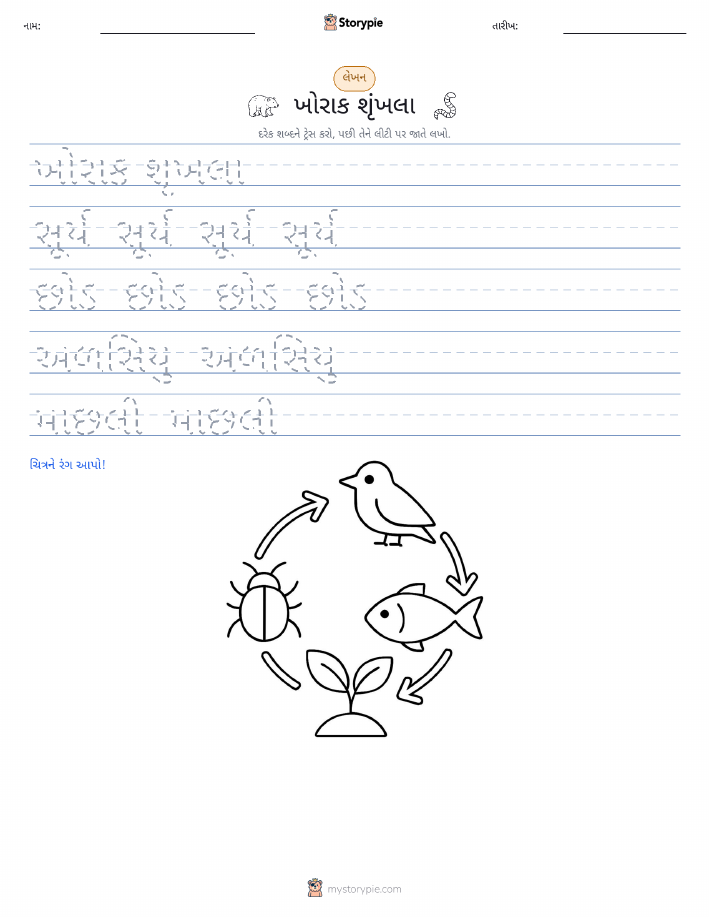 નામ:
Storypie
તારીખ:
લેખન
ખોરાક શૃંખલા
દરેક શબ્દને ટ્રેસ કરો, પછી તેને લીટી પર જાતે લખો.
ખોરાક શૃંખલા
સૂર્ય સૂર્ય સૂર્ય સૂર્ય
છોડ છોડ છોડ છોડ
અળસિયું અળસિયું
માછલી માછલી
ચિત્રને રંગ આપો!
mystorypie.com